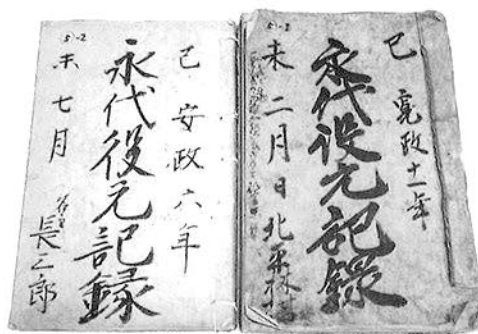 己 寛政十一年
永代役元記録
未 二月日 北
51-2
己 安政六年
永代役元記録
未 七月
長三郎